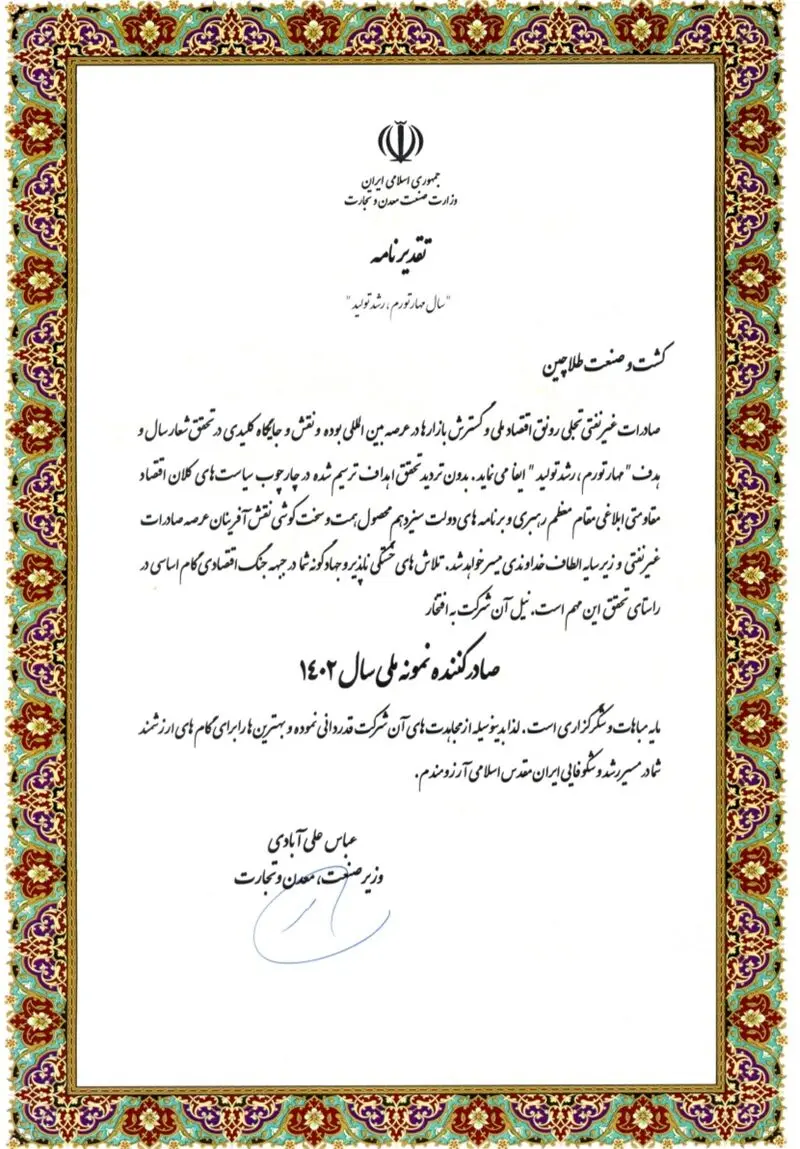 جمهوری اسلامی ایران
وزارت صنعت معدن و تجارت
تقدیرنامه
"سال مهار تورم، رشد تولید"
کشت و صنعت طلاچین
صادرات غیرنفتی تجلی رونق اقتصاد ملی و گسترش بازارها در عرصه بین المللی بوده و نقش و جایگاه کلیدی در تحقق شعار سال و
هدف "مهار تورم، رشد تولید" ایفا می نماید. بدون تردید تحقق اهداف ترسیم شده در چارچوب سیاست های کلان اقتصاد
مقاومتی ابلاغی مقام معظم رهبری و برنامه های دولت سیزدهم محصول همت و سخت کوشی نقش آفرینان عرصه صادرات
غیرنفتی و زیر سایه الطاف خداوندی میسر خواهد شد. تلاش های خستگی ناپذیر و جهادگونه شما در جبهه جنگ اقتصادی گام اساسی در
راستای تحقق این مهم است. نیل آن شرکت به افتخار
صادرکننده نمونه ملی سال ۱۴۰۲
مایه مباهات و شکرگزاری است. لذا بدینوسیله از مجاهدت های آن شرکت قدردانی نموده و بهترین ها را برای گام های ارزشمند
شما در مسیر رشد و شکوفایی ایران مقدس اسلامی آرزومندم.
عباس علی آبادی
وزیر صنعت، معدن و تجارت